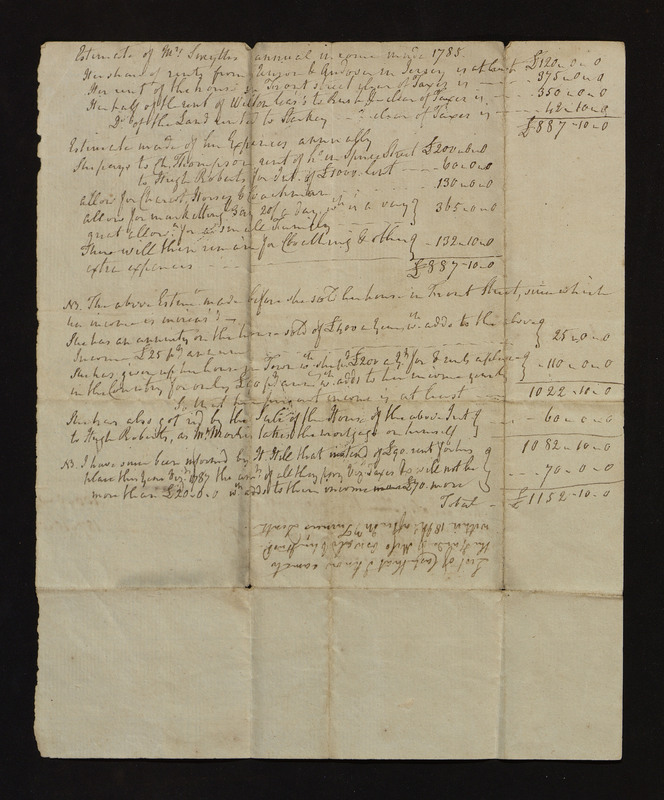 Estimate of Mrs Smyths annual income made 1785.
Her share of rents from Union & Andover in Jersey is at least £120"0"0
Her rent of the house in Front Street clear of Taxes is 375"0"0
Her half of the rent of Wilton leas'd to Rush clear of Taxes is 350"0"0
Do of the Land rented to Starkey clear of Taxes is 42"10"0
£887"10"0
Estimate made of her Expences annually
She pays to Ch Thompson rent of he in Spruce Street £200"0"0
to Hugh Roberts for Int. of £1000 Cost 60"0"0
allow for Chariot, Horses & Coachman 130"0"0
allow for marketting 20/ a day wch is a very 365"0"0
great allowce for small family
There will then remain for Cloathing & other 132"10"0
extra expences
£887"10"0
NB. The above Estimte made before she sold her house in Front Street, since which
her income is increas'd
She has an annuity on the house sold of £400 a year wch adds to the above
Income £25 pr annum 25"0"0
She has given up her house in Town wch she pd £200 a yr for & rents a place
in the Country for only £90 pr ann wch adds to her income yearly 110"0"0
So that her present income is at least 1022"10"0
She has also got rid by the Sale of the House of the above Int
to Hugh Roberts, as Mr takes the mortgage on himself 60"0"0
1082"10"0
NB. I have since been informed by H Hill that instead of £90 rent for her
place this year 1787 the amt of all they pay Taxes &c will not be
more than £20"0"0 wch adds to their income £70 more 70"0"0
Total £1152"10"0
List of that I know came to
the hands of
within 18 Mo after Mr Turners Death